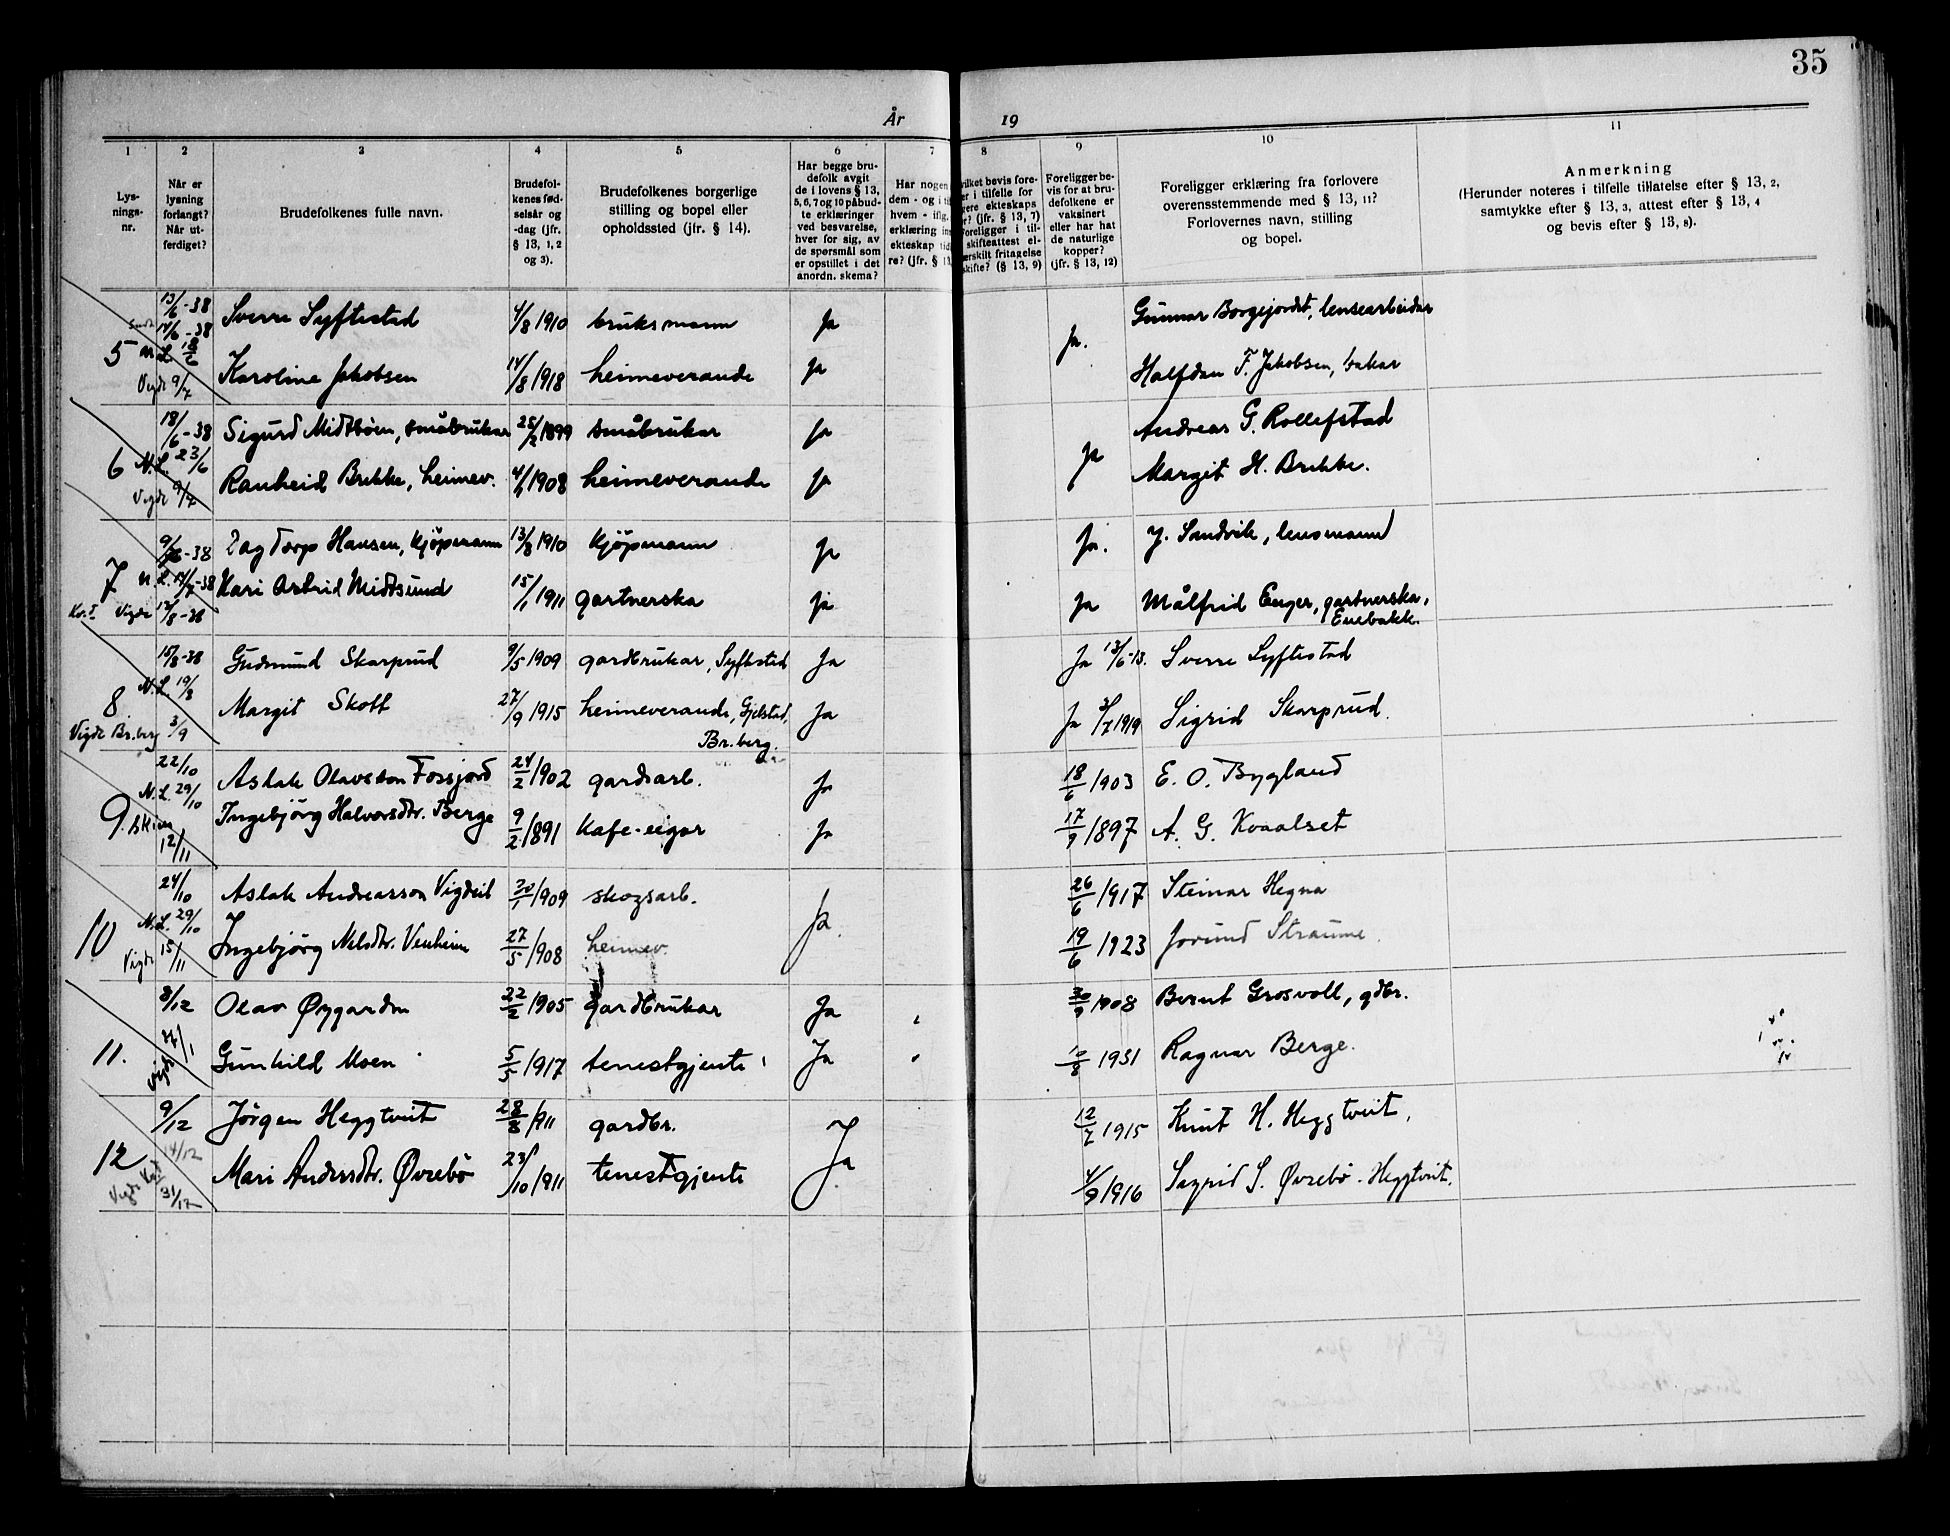 35
År 19
1
2
3
4
5
6
7
8
9
10
11
Lys-
nings-
nr.
Når er
lysning
forlangt?
Når ut-
ferdiget?
Brudefolkenes fulle navn.
Brudefol-
kenes fød-
selsår og
-dag (jfr.
§ 13, 1, 2
og 3).
Brudefolkenes borgerlige
stilling og bopel eller
opholdssted (jfr. § 14).
Har begge bru-
defolk avgit
de i lovens § 13,
5, 6, 7 og 10 påbud-
te erklæringer
ved besvarelse,
hver for sig, av
de spørsmål som
er opstillet i det
anordn. skema?
Har nogen
dem - og i
hvem - iflg.
erklæring
ekteskap
re? (jfr. § 13
bevis fore-
er i tilfelle for
ekteskaps
(jfr. § 13, 7)
Foreligger i til-
skifteattest el-
fritagelse
(§ 13, 9)
Foreligger be-
vis for at bru-
defolkene er
vaksinert
eller har hat
de naturlige
kopper?
(jfr. § 13, 12)
Foreligger erklæring fra forlovere
overensstemmende med § 13, 11?
Forlovernes navn, stilling
og bopel.
Anmerkning
(Herunder noteres i tilfelle tillatelse efter § 13, 2,
samtykke efter § 13, 3, attest efter § 13, 4
og bevis efter § 13, 8).
5
13/6-38
14/6-38
Sverre Syftestad 4/8 1910 bruksmann Ja Ja. Gunnar Borgejordet, lensearbeidar
Vigde 9/7 Karoline Jakobsen 14/8 1918 heimeverande Ja Halfdan F. Jakobsen, bakar
6
18/6-38 Sigurd Midtbøen, småbrukar 25/2 1899 småbrukar Ja Ja Andreas G. Rollefstad
N.L. 23/6
Vigde 9/7
Ranheid Brekke, heimev. 1908 heimeverande Ja Margit H. Brekke.
7
-38 Dag Torp Hansen, kjöpmann 13/8 1910 kjöpmann Ja Ja. Y. Sandvik, lensmann
N.L. 14/7-38 Kari Astrid Midtsund 15/1 1911 gartnerska Ja Ja Målfrid Enger, gartnerska,
Enebakk.
Vigde 13/8-38
8
15/8-38 Gudmund Skarprud 9/5 1909 gardbrukar, Syftestad Ja Ja 13/6-13. Sverre Syftestad
N.L. 19/8
Margit Skott 27/9 1915 heimeverande, Gjelstad, Ja Ja 3/7 1919 Sigrid Skarprud.
Br.berg.
Vigde Br.berg 3/9
9
22/10 Aslak Olavsson Fossjord 24/2 1902 gardsarb. Ja 18/6 1903 E. O. Bygland
N.L. 29/10
Ingebjörg Halvorsdtr. Berge 9/2 1891 kafe-eigar Ja 17/9 1897 A. G. Kvaalset
Skien 12/11
10
24/10 Aslak Andreasson Vigdeit 30/1 1909 skogsarb. Ja. 26/6 1917 Steinar Hegna
N.L. 29/10
Ingebjörg Nilsdtr. Venheim 27/5 1908 heimev. 19/6 1923 Jorund Straume.
Vigde 15/11
11.
8/12 Olav Øygarden 22/2 1905 gardbrukar Ja 30/9 1908 Bernt Grosvoll, gdbr.
Vigde 27/1
Gunhild Moen 5/5 1917 tenestgjente Ja 10/8 1931 Ragnar Berge.
12
9/12 Jörgen Heggtveit 28/8 1911 gardbr. Ja. 12/7 1915 Knut H. Heggtveit.
14/12
Mari Andersdtr. Øvrebö 23/10 1911 tenestgjente 4/9 1916 Sigrid S. Øvrebö - Heggtveit.
Vigde 31/12